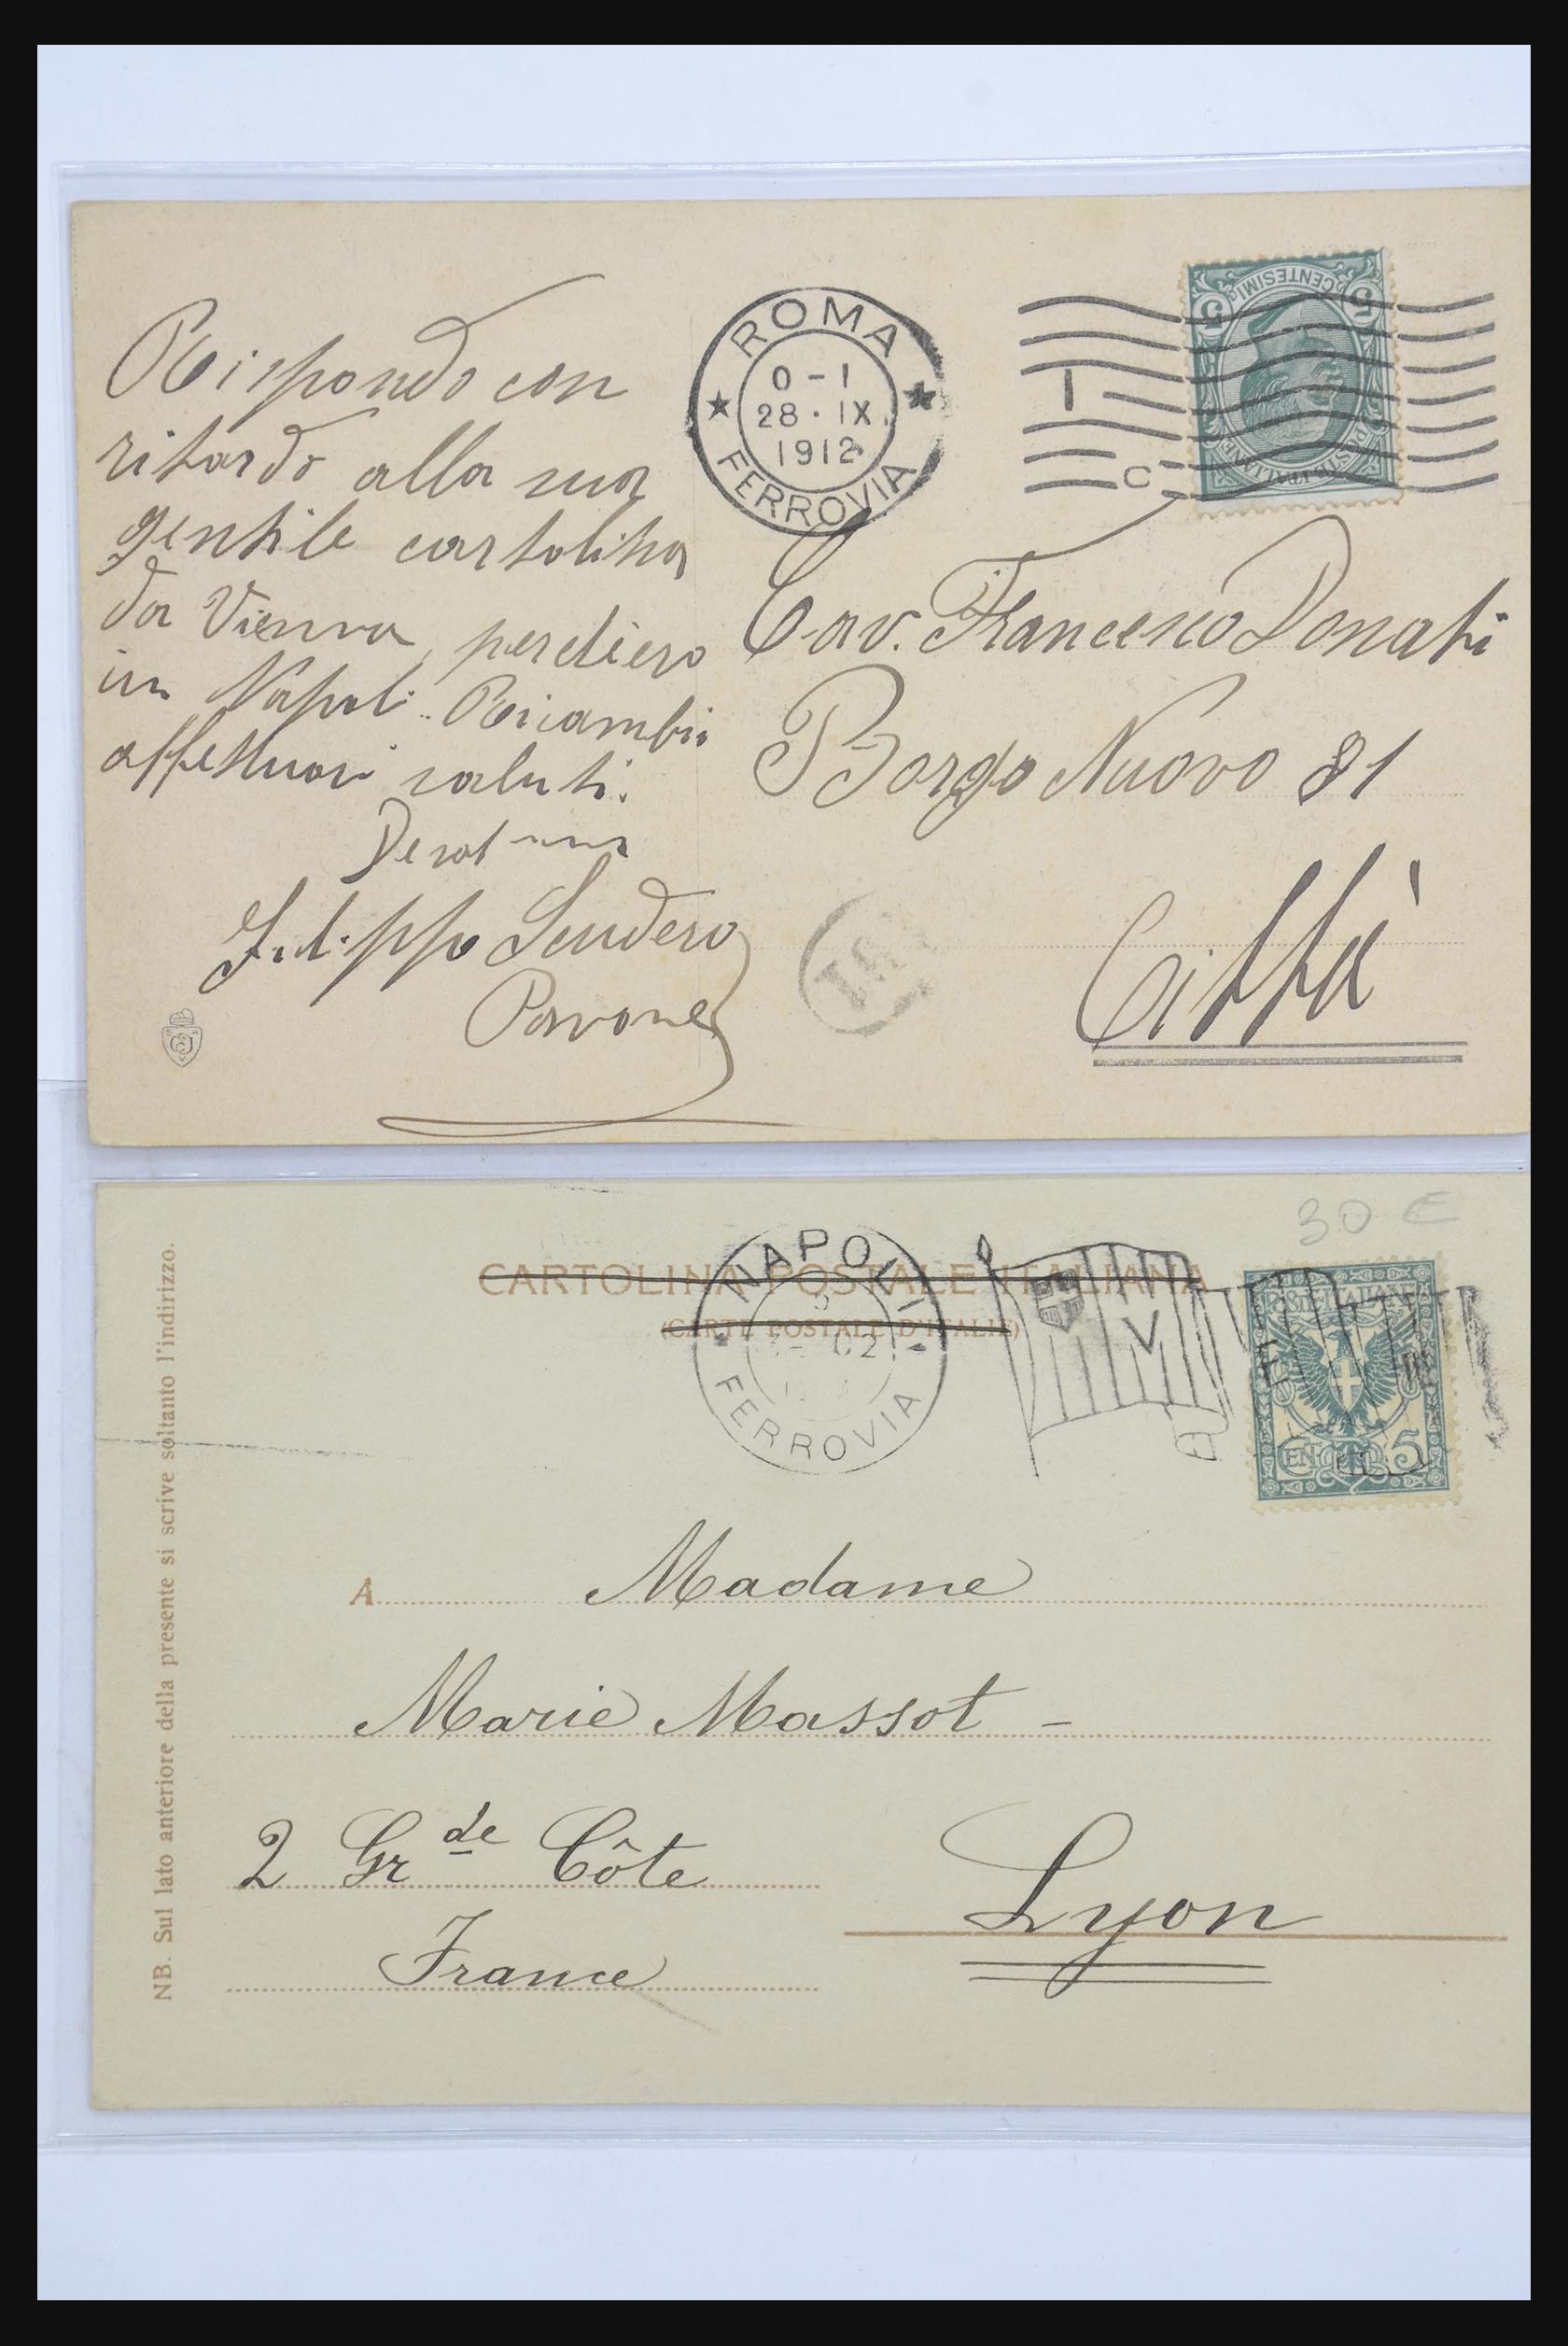 Rispondo con
ritardo alla sua
gentile cartolina
da Vienna, perchè ero
in Napoli. Ricambio
affettuosi saluti.
Filippo Scudero
Pavone
ROMA
0-1
28·IX.
1912
FERROVIA
I
C
CENTESIMI
5 5
POSTE ITALIANE
Cav. Francesco Donati
Borgo Nuovo 81
Città
30 €
CARTOLINA POSTALE ITALIANA
(CARTE POSTALE D'ITALIE)
NAPOLI
02
FERROVIA
V
E
III
POSTE ITALIANE
CENT. 5
A Madame
Marie Massot -
2 Gr de Côte
Lyon
France
NB. Sul lato anteriore della presente si scrive soltanto l'indirizzo.